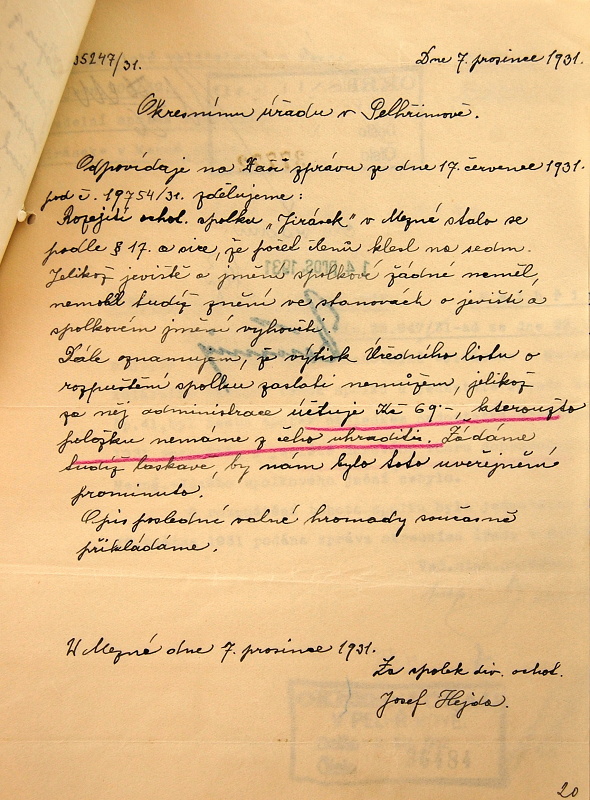 35247/31.
Dne 7. prosince 1931.
Okresnímu úřadu v Pelhřimově.
Odpovídaje na Vaší zprávu ze dne 17. červenec 1931.
pod č. 19754/31. zdělujeme:
Rozejití ochot. spolku "Jirásek" v Mezné stalo se
podle § 17. a sice, že počet členů klesl na sedm.
Jelikož jeviště a jmění spolkové žádné neměl,
nemohl tudíž znění ve stanovách o jevišti a
spolkovém jmění vyhověti.
Dále oznamujem, že výtisk Úředního listu o
rozpuštění spolku zaslati nemůžem, jelikož
za něj administrace účtuje Kč 69·-, kteroužto
položku nemáme z čeho uhraditi. Žádáme
tudíž laskavě, by nám bylo toto uveřejnění
prominuto.
Opis poslední valné hromady současně
přikládáme.
V Mezné dne 7. prosince 1931.
Za spolek div. ochot.
Josef Hejda.
20